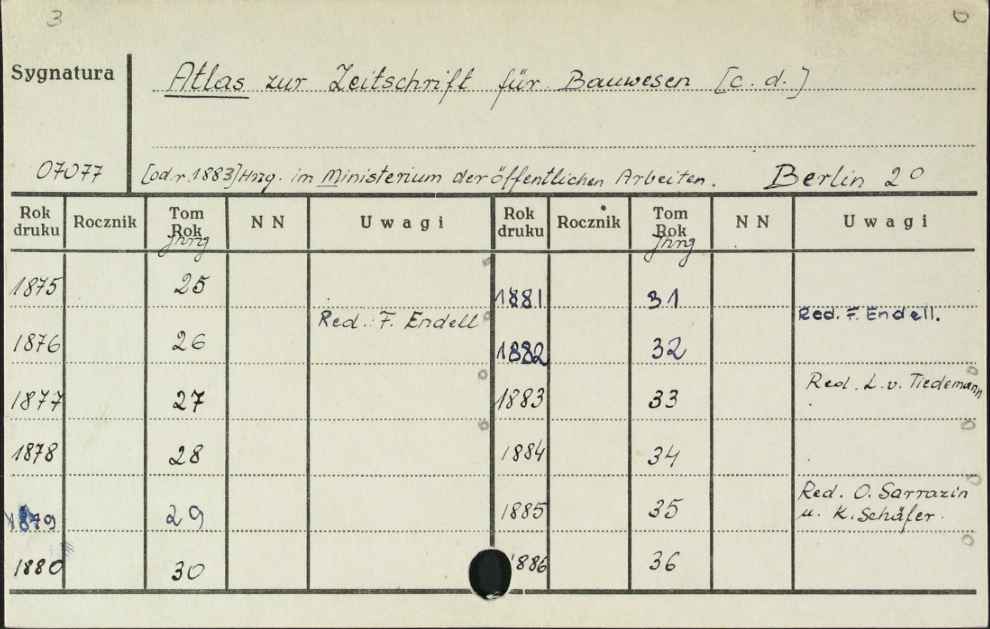 3 0
Sygnatura
Atlas zur Zeitschrift für Bauwesen [c. d.]
07077
[od r. 1883] Hrsg. im Ministerium der öffentlichen Arbeiten. Berlin 2°
Rok druku Rocznik Tom Rok Jhrg NN Uwagi Rok druku Rocznik Tom Rok Jhrg NN Uwagi
1875 25 1881 31
Red. F. Endell Red. F. Endell.
1876 26 1882 32
1877 27 1883 33 Red. L. v. Tiedemann
1878 28 1884 34
1879 29 1885 35 Red. O. Sarrazin
u. K. Schäfer.
1880 30 1886 36